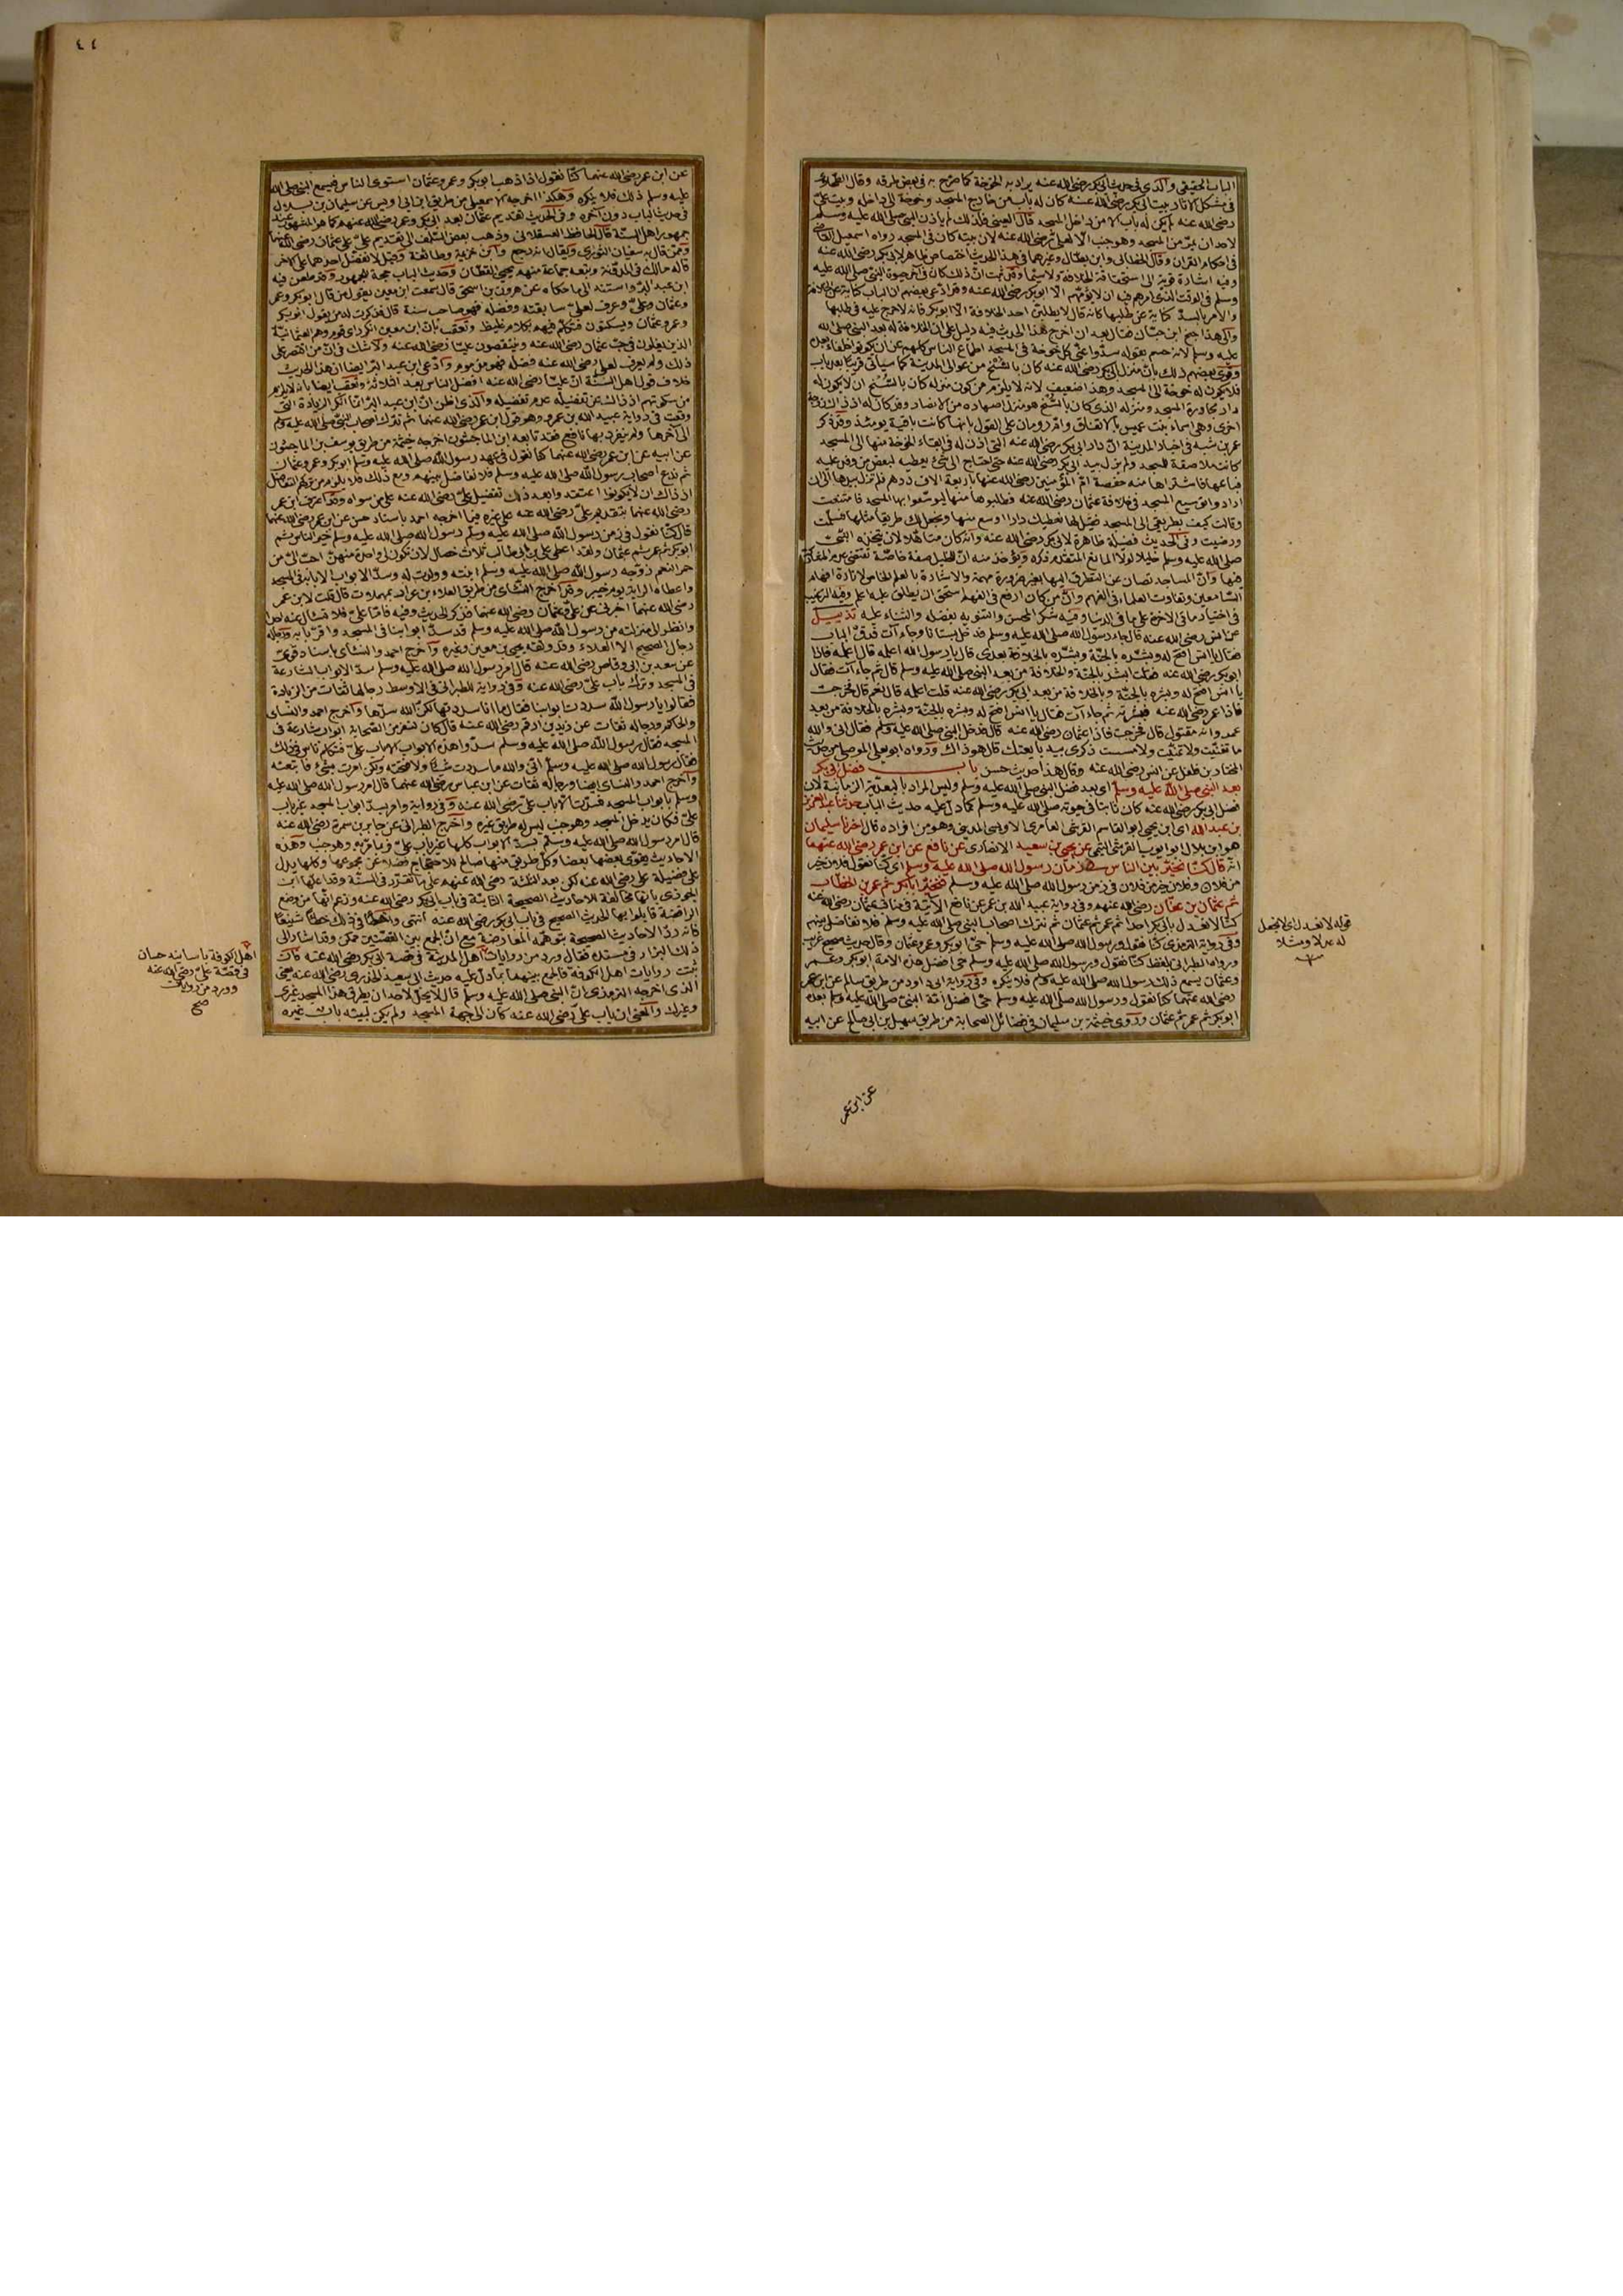 الباب الحقيقي والذي في حديث ابي بكر رضي الله عنه يراد به الخوخة كما صرح به في بعض طرقه وقال الطحاوي
في مشكل الاثار بيت ابي بكر رضي الله عنه كان له باب من خارج المسجد وخوخة الى داخله وبيت علي
رضي الله عنه لم يكن له باب الا من داخل المسجد قال العيني فلذلك لم ياذن النبي صلى الله عليه وسلم
لاحد ان يمر من المسجد وهو جنب الا لعلي رضي الله عنه لان بيته كان في المسجد رواه اسمعيل القاضي
في احكام القران وقال الخطابي وابن بطال وغيرهما في هذا الحديث اختصاص ظاهر لابي بكر رضي الله عنه
وفيه اشارة قوية الى استحقاقه للخلافة ولا سيما وقد ثبت ان ذلك كان في آخر حيوة النبي صلى الله عليه
وسلم في الوقت الذي امرهم فيه ان لا يؤمهم الا ابو بكر رضي الله عنه وقد ادعى بعضهم ان الباب كناية عن الخلافة
والامر بالسد كناية عن طلبها كانه قال لا يطلبن احد الخلافة الا ابو بكر فانه لا حرج عليه في طلبها
والى هذا جنح ابن حبان فقال بعد ان اخرج هذا الحديث فيه دليل على ان الخلافة له بعد النبي صلى الله
عليه وسلم لانه حسم بقوله سدوا عني كل خوخة في المسجد اطماع الناس كلهم عن ان يكونوا خلفاء بعده
وقوى بعضهم ذلك بان منزل ابي بكر رضي الله عنه كان بالسنح من عوالي المدينة كما سيأتي قريبا بعد باب
فلا يكون له خوخة الى المسجد وهذا ضعيف لانه لا يلزم من كون منزله كان بالسنح ان لا يكون له
دار مجاورة المسجد ومنزله الذي كان بالسنح هو منزل اصهاره من الانصار وقد كان له اذ ذاك زوجة
اخرى وهي اسماء بنت عميس بالاتفاق وام رومان على القول بانها كانت باقية يومئذ وقد ذكر
عمر بن شبه في اخبار المدينة ان دار ابي بكر رضي الله عنه التي اذن له في ابقاء الخوخة منها الى المسجد
كانت ملاصقة للمسجد ولم يزل بيد ابي بكر رضي الله عنه حتى احتاج الى شيء يعطيه لبعض من وفد عليه
فباعها فاشتراها منه حفصة ام المؤمنين رضي الله عنها باربعة الاف درهم فلم تزل بيدها الى ان
اراد توسيع المسجد في خلافة عثمان رضي الله عنه فطلبوها منها ليوسعوا بها المسجد فامتنعت
وقالت كيف بطريقي الى المسجد فقيل لها نعطيك دارا اوسع منها ونجعل لك طريقا مثلها فسلمت
ورضيت وفي الحديث فضيلة ظاهرة لابي بكر رضي الله عنه وانه كان متاهلا لان يتخذه النبي
صلى الله عليه وسلم خليلا لولا المانع المتقدم ذكره ويؤخذ منه ان للخليل صفة خاصة تقتضي عدم المشاركة
فيها وان المساجد تصان عن التطرق اليها بغير ضرورة مهمة والاشارة بالعلم الخاص لاثارة افهام
السامعين وتفاوت العلماء في الفهم وان من كان ارفع في الفهم استحق ان يطلق عليه اعلم وفيه الترغيب
في اختيار ما في الاخرة على ما في الدنيا وفيه شكر المحسن والتنويه بفضله والثناء عليه تذييل
عن انس رضي الله عنه قال جاء رسول الله صلى الله عليه وسلم فدخل بستانا وجاء آت فدق الباب
فقال يا انس افتح له وبشره بالجنة وبشره بالخلافة بعدي قال يا رسول الله اعلمه قال اعلمه فاذا
ابو بكر رضي الله عنه فقلت ابشر بالجنة والخلافة من بعد النبي صلى الله عليه وسلم قال ثم جاء آت فقال
يا انس افتح له وبشره بالجنة وبالخلافة من بعد ابي بكر رضي الله عنه قلت اعلمه قال نعم قال فخرجت
فاذا عمر رضي الله عنه فبشرته ثم جاء آت فقال يا انس افتح له وبشره بالجنة وبشره بالخلافة من بعد
عمر وانه مقتول قال فخرجت فاذا عثمان رضي الله عنه قال فدخل النبي صلى الله عليه وسلم فقال اني والله
ما تغنيت ولا تمنيت ولا مسست ذكري بيد بايعتك قال هو ذاك ورواه ابو يعلى الموصلي من حديث
المختار بن فلفل عن انس رضي الله عنه وقال هذا حديث حسن باب فضل ابي بكر
بعد النبي صلى الله عليه وسلم اي بعد فضل النبي صلى الله عليه وسلم وليس المراد بالبعدية الزمانية لان
فضل ابي بكر رضي الله عنه كان ثابتا في حيوته صلى الله عليه وسلم كما دل عليه حديث الباب حدثنا عبد العزيز
بن عبد الله اي ابن يحيى ابو القاسم القرشي العامري الاويسي المديني وهو من افراده قال اخبرنا سليمان
هو ابن بلال ابو ايوب القرشي التيمي عن يحيى بن سعيد الانصاري عن نافع عن ابن عمر رضي الله عنهما
انه قال كنا نخير بين الناس في زمان رسول الله صلى الله عليه وسلم اي كنا نقول فلان خير
من فلان وفلان خير من فلان في زمن رسول الله صلى الله عليه وسلم فنخير ابا بكر ثم عمر بن الخطاب
ثم عثمان بن عفان رضي الله عنهم وفي رواية عبيد الله بن عمر عن نافع الآتية في مناقب عثمان رضي الله عنه
كنا لا نعدل بابي بكر احدا ثم عمر ثم عثمان ثم نترك اصحاب النبي صلى الله عليه وسلم فلا نفاضل بينهم
وفي رواية الترمذي كنا نقول ورسول الله صلى الله عليه وسلم حي ابو بكر وعمر وعثمان وقال حديث صحيح غريب
ورواه الطبراني بلفظ كنا نقول ورسول الله صلى الله عليه وسلم حي افضل هذه الامة ابو بكر وعمر
وعثمان يسمع ذلك رسول الله صلى الله عليه وسلم فلا ينكره وفي رواية ابي داود من طريق سالم عن ابن عمر
رضي الله عنهما كنا نقول ورسول الله صلى الله عليه وسلم حي افضل امة النبي صلى الله عليه وسلم بعده
ابو بكر ثم عمر ثم عثمان وروى خيثمة بن سليمان في فضائل الصحابة من طريق سهيل بن ابي صالح عن ابيه
قوله لا نعدل اي لا نجعل
له عدلا ومثلا
عن ابن عمر
٤٤
عن ابن عمر رضي الله عنهما كنا نقول اذا ذهب ابو بكر وعمر وعثمان استوى الناس فيسمع النبي صلى الله
عليه وسلم ذلك فلا ينكره وهكذا اخرجه الاسمعيلي من طريق ابن ابي اويس عن سليمان بن بلال
في حديث الباب دون آخره وفي الحديث تقديم عثمان بعد ابي بكر وعمر رضي الله عنهم كما هو المشهور عند
جمهور اهل السنة قال الحافظ العسقلاني وذهب بعض السلف الى تقديم علي على عثمان رضي الله عنهما
وممن قال به سفيان الثوري ويقال انه رجع وابن خزيمة وطائفة وقيل لا تفضل احدهما على الاخر
قاله مالك في المدونة وتبعه جماعة منهم يحيى القطان وحديث الباب حجة للجمهور وقد طعن فيه
ابن عبد البر واستند الى ما حكاه عن هرون بن اسحق قال سمعت ابن معين يقول من قال ابو بكر وعمر
وعثمان وعلي وعرف لعلي سابقته وفضله فهو صاحب سنة قال فذكرت له من يقول ابو بكر
وعمر وعثمان ويسكتون فتكلم فيهم بكلام غليظ وتعقب بان ابن معين انكر راى قوم وهم العثمانية
الذين يغلون في حب عثمان رضي الله عنه وينتقصون عليا رضي الله عنه ولا شك في ان من اقتصر على
ذلك ولم يعرف لعلي رضي الله عنه فضله فهو مذموم وادعى ابن عبد البر ايضا ان هذا الحديث
خلاف قول اهل السنة ان عليا رضي الله عنه افضل الناس بعد الثلاثة وتعقب ايضا بانه لا يلزم
من سكوتهم اذ ذاك عن تفضيله عدم تفضيله والذي اظن ان ابن عبد البر انما انكر الزيادة التي
وقعت في رواية عبيد الله بن عمر وهو قول ابن عمر رضي الله عنهما ثم نترك اصحاب النبي صلى الله عليه وسلم
الى آخرها ولم ينفرد بها نافع فقد تابعه ابن الماجشون اخرجه خيثمة من طريق يوسف بن الماجشون
عن ابيه عن ابن عمر رضي الله عنهما كنا نقول في عهد رسول الله صلى الله عليه وسلم ابو بكر وعمر وعثمان
ثم ندع اصحاب رسول الله صلى الله عليه وسلم فلا نفاضل بينهم ومع ذلك فلا يلزم من تركهم التفاضل
اذ ذاك ان لا يكونوا اعتقدوا بعد ذلك تفضيل علي رضي الله عنه على من سواه وقد اعترف ابن عمر
رضي الله عنهما بتقديم علي رضي الله عنه على غيره فيما اخرجه احمد باسناد حسن عن ابن عمر رضي الله عنهما
قال كنا نقول في زمن رسول الله صلى الله عليه وسلم رسول الله صلى الله عليه وسلم خير الناس ثم
ابو بكر ثم عمر ثم عثمان ولقد اعطي علي بن ابي طالب ثلاث خصال لان تكون لي واحدة منهن احب الي من
حمر النعم زوجه رسول الله صلى الله عليه وسلم ابنته وولدت له وسد الابواب الا بابه في المسجد
واعطاه الراية يوم خيبر وقد اخرج النسائي من طريق العلاء بن عرار بمهملات قال قلت لابن عمر
رضي الله عنهما اخبرني عن علي وعثمان رضي الله عنهما فذكر الحديث وفيه فاما علي فلا تسأل عنه احدا
وانظر الى منزلته من رسول الله صلى الله عليه وسلم قد سد ابوابنا في المسجد واقر بابه ورجاله
رجال الصحيح الا العلاء وقد وثقه يحيى بن معين وغيره وآخرج احمد والنسائي باسناد قوي
عن سعد بن ابي وقاص رضي الله عنه قال امر رسول الله صلى الله عليه وسلم بسد الابواب الشارعة
في المسجد وترك باب علي رضي الله عنه وفي رواية للطبراني في الاوسط رجالها ثقات من الزيادة
فقالوا يا رسول الله سددت ابوابنا فقال ما انا سددتها لكن الله سدها وآخرج احمد والنسائي
والحاكم ورجاله ثقات عن زيد بن ارقم رضي الله عنه قال كان لنفر من الصحابة ابواب شارعة في
المسجد فقال رسول الله صلى الله عليه وسلم سدوا هذه الابواب الا باب علي فتكلم ناس في ذلك
فقال رسول الله صلى الله عليه وسلم اني والله ما سددت شيئا ولا فتحته ولكن امرت بشيء فاتبعته
وآخرج احمد والنسائي ايضا ورجاله ثقات عن ابن عباس رضي الله عنهما قال امر رسول الله صلى الله عليه
وسلم بابواب المسجد فسدت الا باب علي رضي الله عنه وفي رواية وامر بسد ابواب المسجد غير باب
علي فكان يدخل المسجد وهو جنب ليس له طريق غيره وآخرج الطبراني عن جابر بن سمرة رضي الله عنه
قال امر رسول الله صلى الله عليه وسلم بسد الابواب كلها غير باب علي فربما مر به وهو جنب وهذه
الاحاديث يقوي بعضها بعضا وكل طريق منها صالح للاحتجاج فضلا عن مجموعها وكلها يدل
على فضيلة علي رضي الله عنه لكن بعد الثلثة رضي الله عنهم على ما تقرر في السنة وقد اعلها ابن
الجوزي بانها مخالفة للاحاديث الصحيحة الثابتة في باب ابي بكر رضي الله عنه وزعم انها من وضع
الرافضة قابلوا بها الحديث الصحيح في باب ابي بكر رضي الله عنه انتهى واخطأ في ذلك خطأ شنيعا
فانه رد الاحاديث الصحيحة بتوهمه المعارضة مع ان الجمع بين القصتين ممكن وقد اشار الى
ذلك البزار في مسنده فقال ورد من روايات اهل المدينة في قصة ابي بكر رضي الله عنه فان
ثبتت روايات اهل الكوفة فالجمع بينهما بما دل عليه حديث ابي سعيد الخدري رضي الله عنه يعني
الذي اخرجه الترمذي ان النبي صلى الله عليه وسلم قال لا يحل لاحد ان يطرق هذا المسجد غيري
وغيرك والمعنى ان باب علي رضي الله عنه كان الى جهة المسجد ولم يكن لبيته باب غيره
اهل الكوفة باسانيد حسان
في قصة علي رضي الله عنه
وورد من روايات
صح